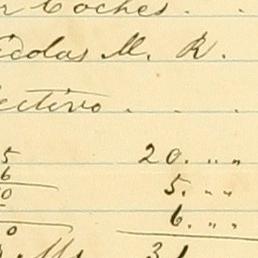 r Coches. .
icolas M. R.
ectivo . . .
5 20. " "
6 5. " "
0 6. " "
0
31